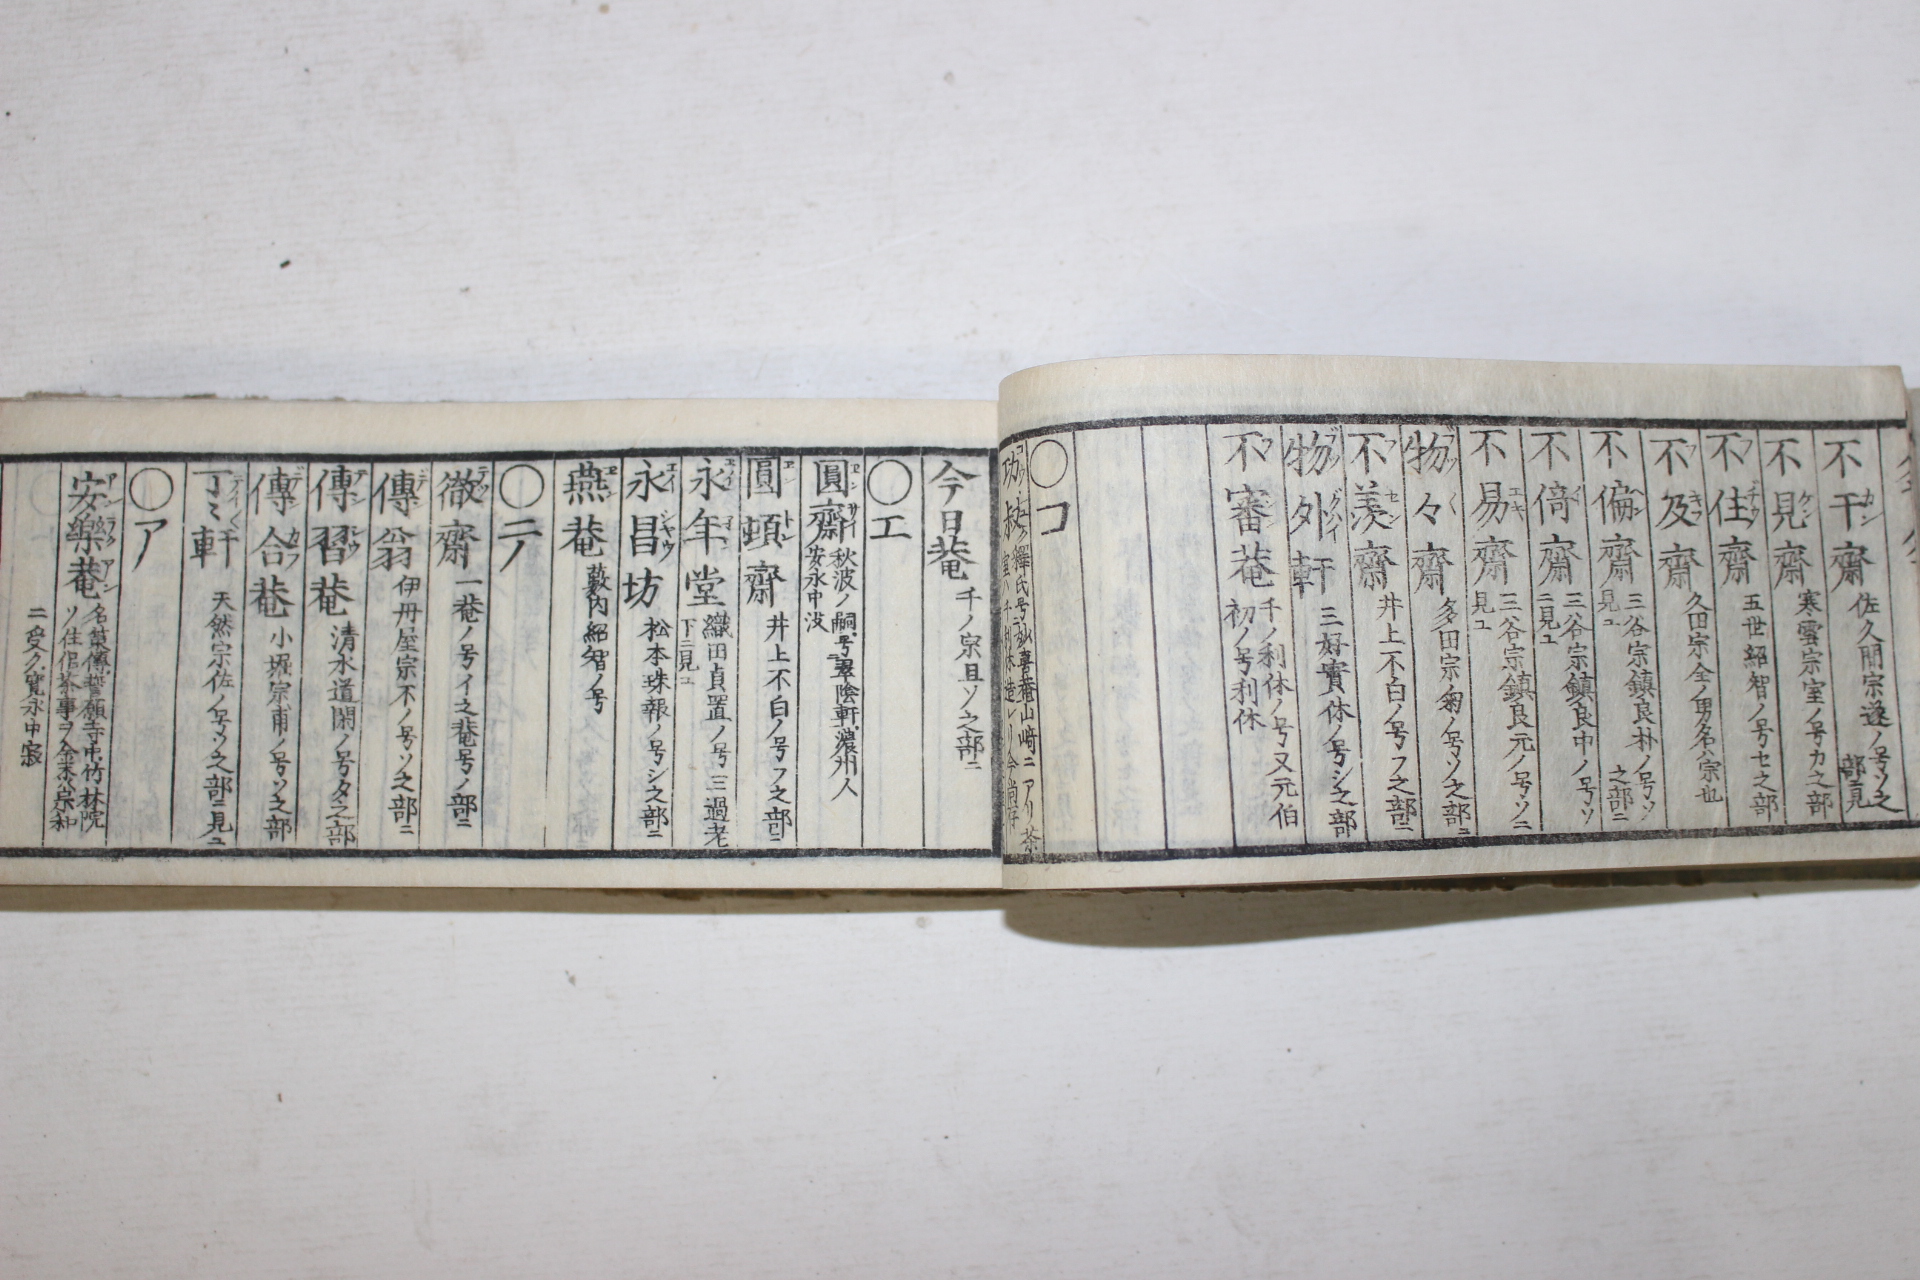 不干齋 佐久間宗遂ノ号ソ之部見
不見齋 寒雲宗室ノ号カ之部
不住齋 五世紹智ノ号セ之部
不及齋 久田宗全ノ男名宗也
不偏齋 三谷宗鎮良朴ノ号ソノ之部ニ見ユ
不倚齋 三谷宗鎮良中ノ号ソニ見ユ
不易齋 三谷宗鎮良元ノ号ソニ見ユ
物々齋 多田宗菊ノ号ソノ之部ニ
不羨齋 井上不白ノ号フ之部ニ
物外軒 三好實休ノ号シ之部
不審菴 千ノ利休ノ号又元伯初ノ号利休
〇コ
今日菴 千ノ宗旦ソ之部ニ
〇エ
圓齋 秋波ノ嗣号翠陰軒濃州人安永中没
圓頓齋 井上不白ノ号フ之部ニ
永年堂 織田貞置ノ号三過老下ニ見ユ
永昌坊 松本珠報ノ号シ之部ニ
燕菴 藪内紹智ノ号
〇テ
徹齋 一菴ノ号イ之菴号ノ部ニ
傳翁 伊丹屋宗不ノ号ソ之部ニ
傳習菴 清水道閑ノ号タ之部
傳合菴 小堀宗甫ノ号ソ之部
丁々軒 天然宗佐ノ号ソ之部ニ見ユ
〇ア
安樂菴 名策傳誓願寺中竹林院ソ住作茶事ヲ金森宗和
ニ受ク寛永中寂